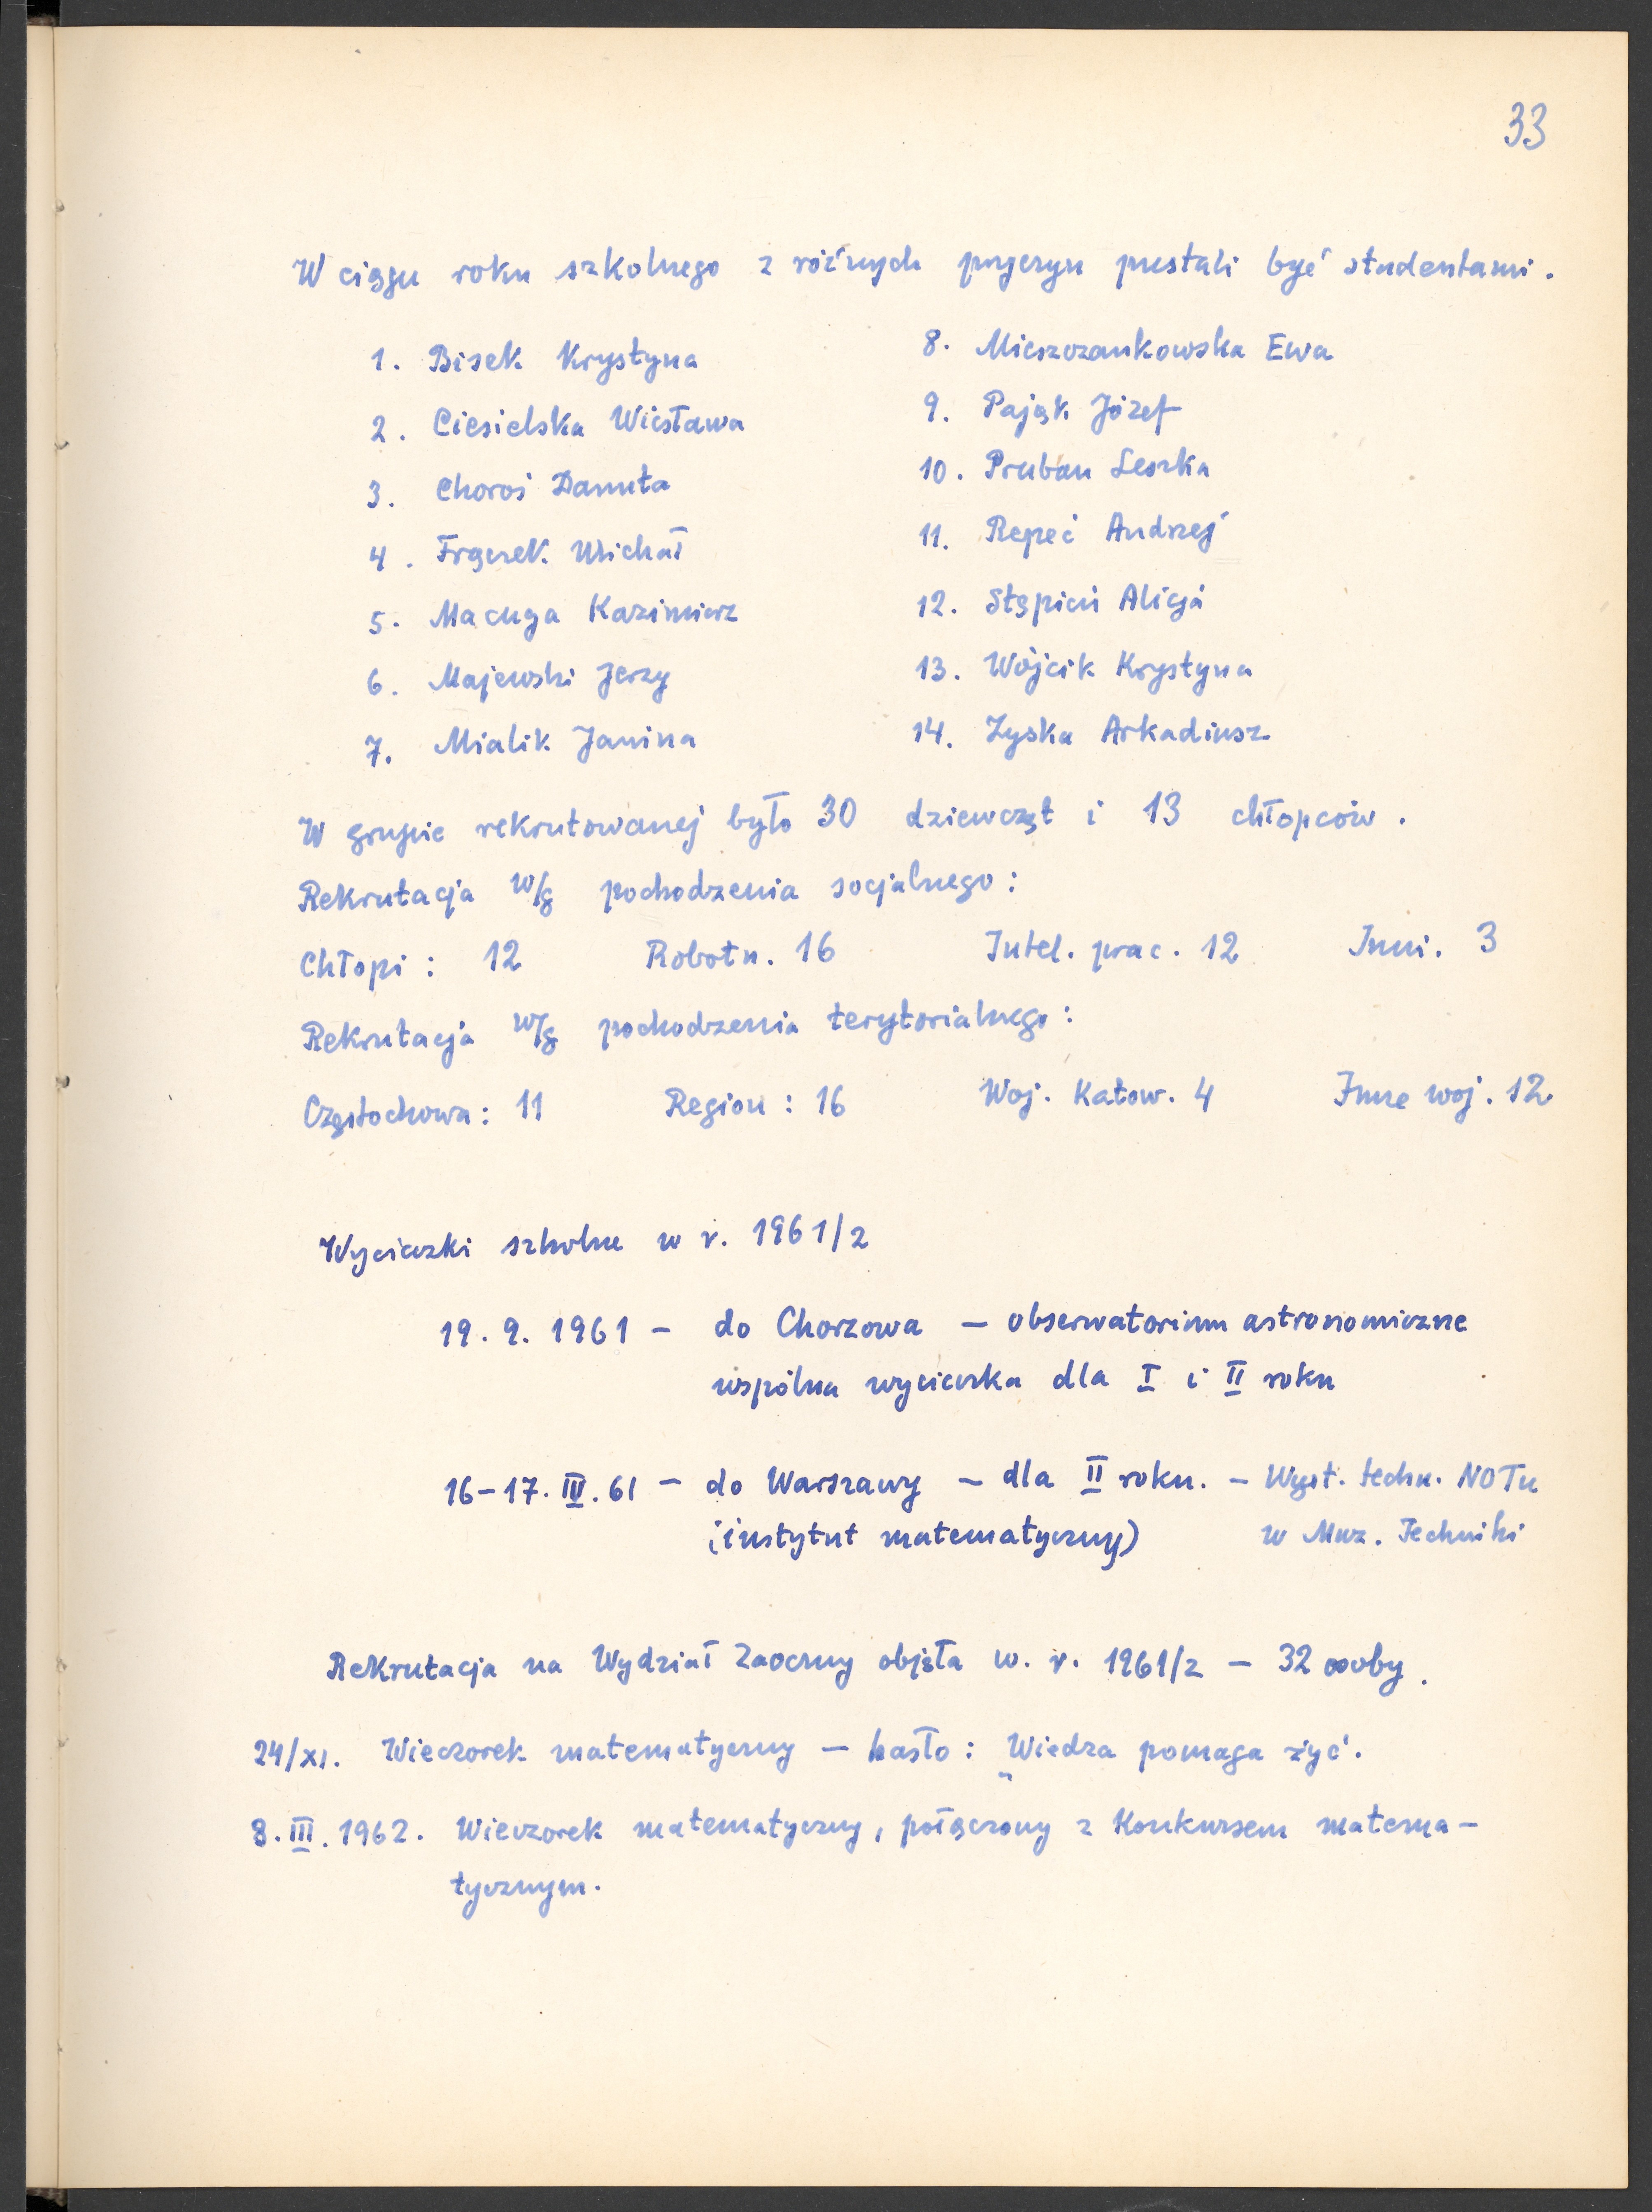 33
W ciągu roku szkolnego z różnych przyczyn przestali być studentami.
1. Bisek Krystyna
2. Ciesielska Wiesława
3. Choroś Danuta
4. Frączek Michał
5. Macuga Kazimierz
6. Majewski Jerzy
7. Mialik Janina
8. Mieszczankowska Ewa
9. Pająk Józef
10. Pruban Leszka
11. Repeć Andrzej
12. Stępień Alicja
13. Wójcik Krystyna
14. Zyska Arkadiusz
W grupie rekrutowanej było 30 dziewcząt i 13 chłopców.
Rekrutacja w/g pochodzenia socjalnego:
Chłopi: 12 Robotn. 16 Intel. prac. 12 Inni. 3
Rekrutacja w/g pochodzenia terytorialnego:
Częstochowa: 11 Region: 16 Woj. Katow. 4 Inne woj. 12
Wycieczki szkolne w r. 1961/2
19. 9. 1961 – do Chorzowa – obserwatorium astronomiczne
wspólna wycieczka dla I i II roku
16–17. IV. 61 – do Warszawy – dla II roku. – Wyst. techn. NOTu
(instytut matematyczny) w Muz. Techniki
Rekrutacja na Wydział Zaoczny objęła w. r. 1961/2 – 32 osoby.
24/XI. Wieczorek matematyczny – hasło: „Wiedza pomaga żyć.
8. III. 1962. Wieczorek matematyczny, połączony z Konkursem matema-
tycznym.